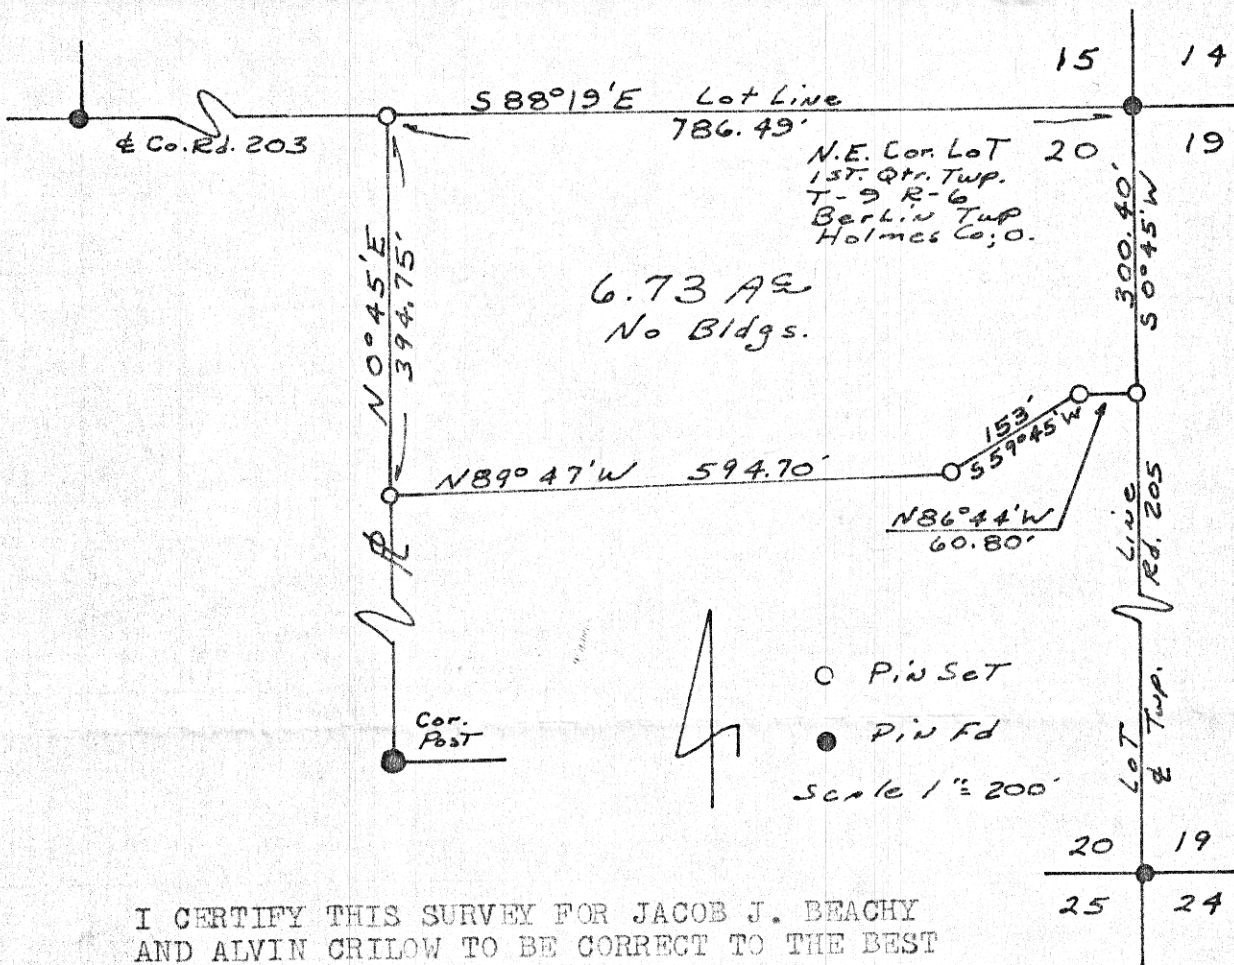 15 14
S 88°19'E Lot Line
786.49'
℄ Co. Rd. 203
20 19
N.E. Cor. LoT
1ST. Qtr. Twp.
T-9 R-6
Berlin Twp
Holmes Co; O.
300.40'
S 0°45'W
N 0°45'E
394.75'
6.73 Ac
No Bldgs.
153'
S 59°45'W
N89°47'W 594.70'
N86°44'W
60.80'
Line
Rd. 205
PL
Pin SeT
Pin Fd
Scale 1" = 200'
Cor.
Post
LoT
℄ Twp.
20 19
25 24
I CERTIFY THIS SURVEY FOR JACOB J. BEACHY
AND ALVIN CRILOW TO BE CORRECT TO THE BEST